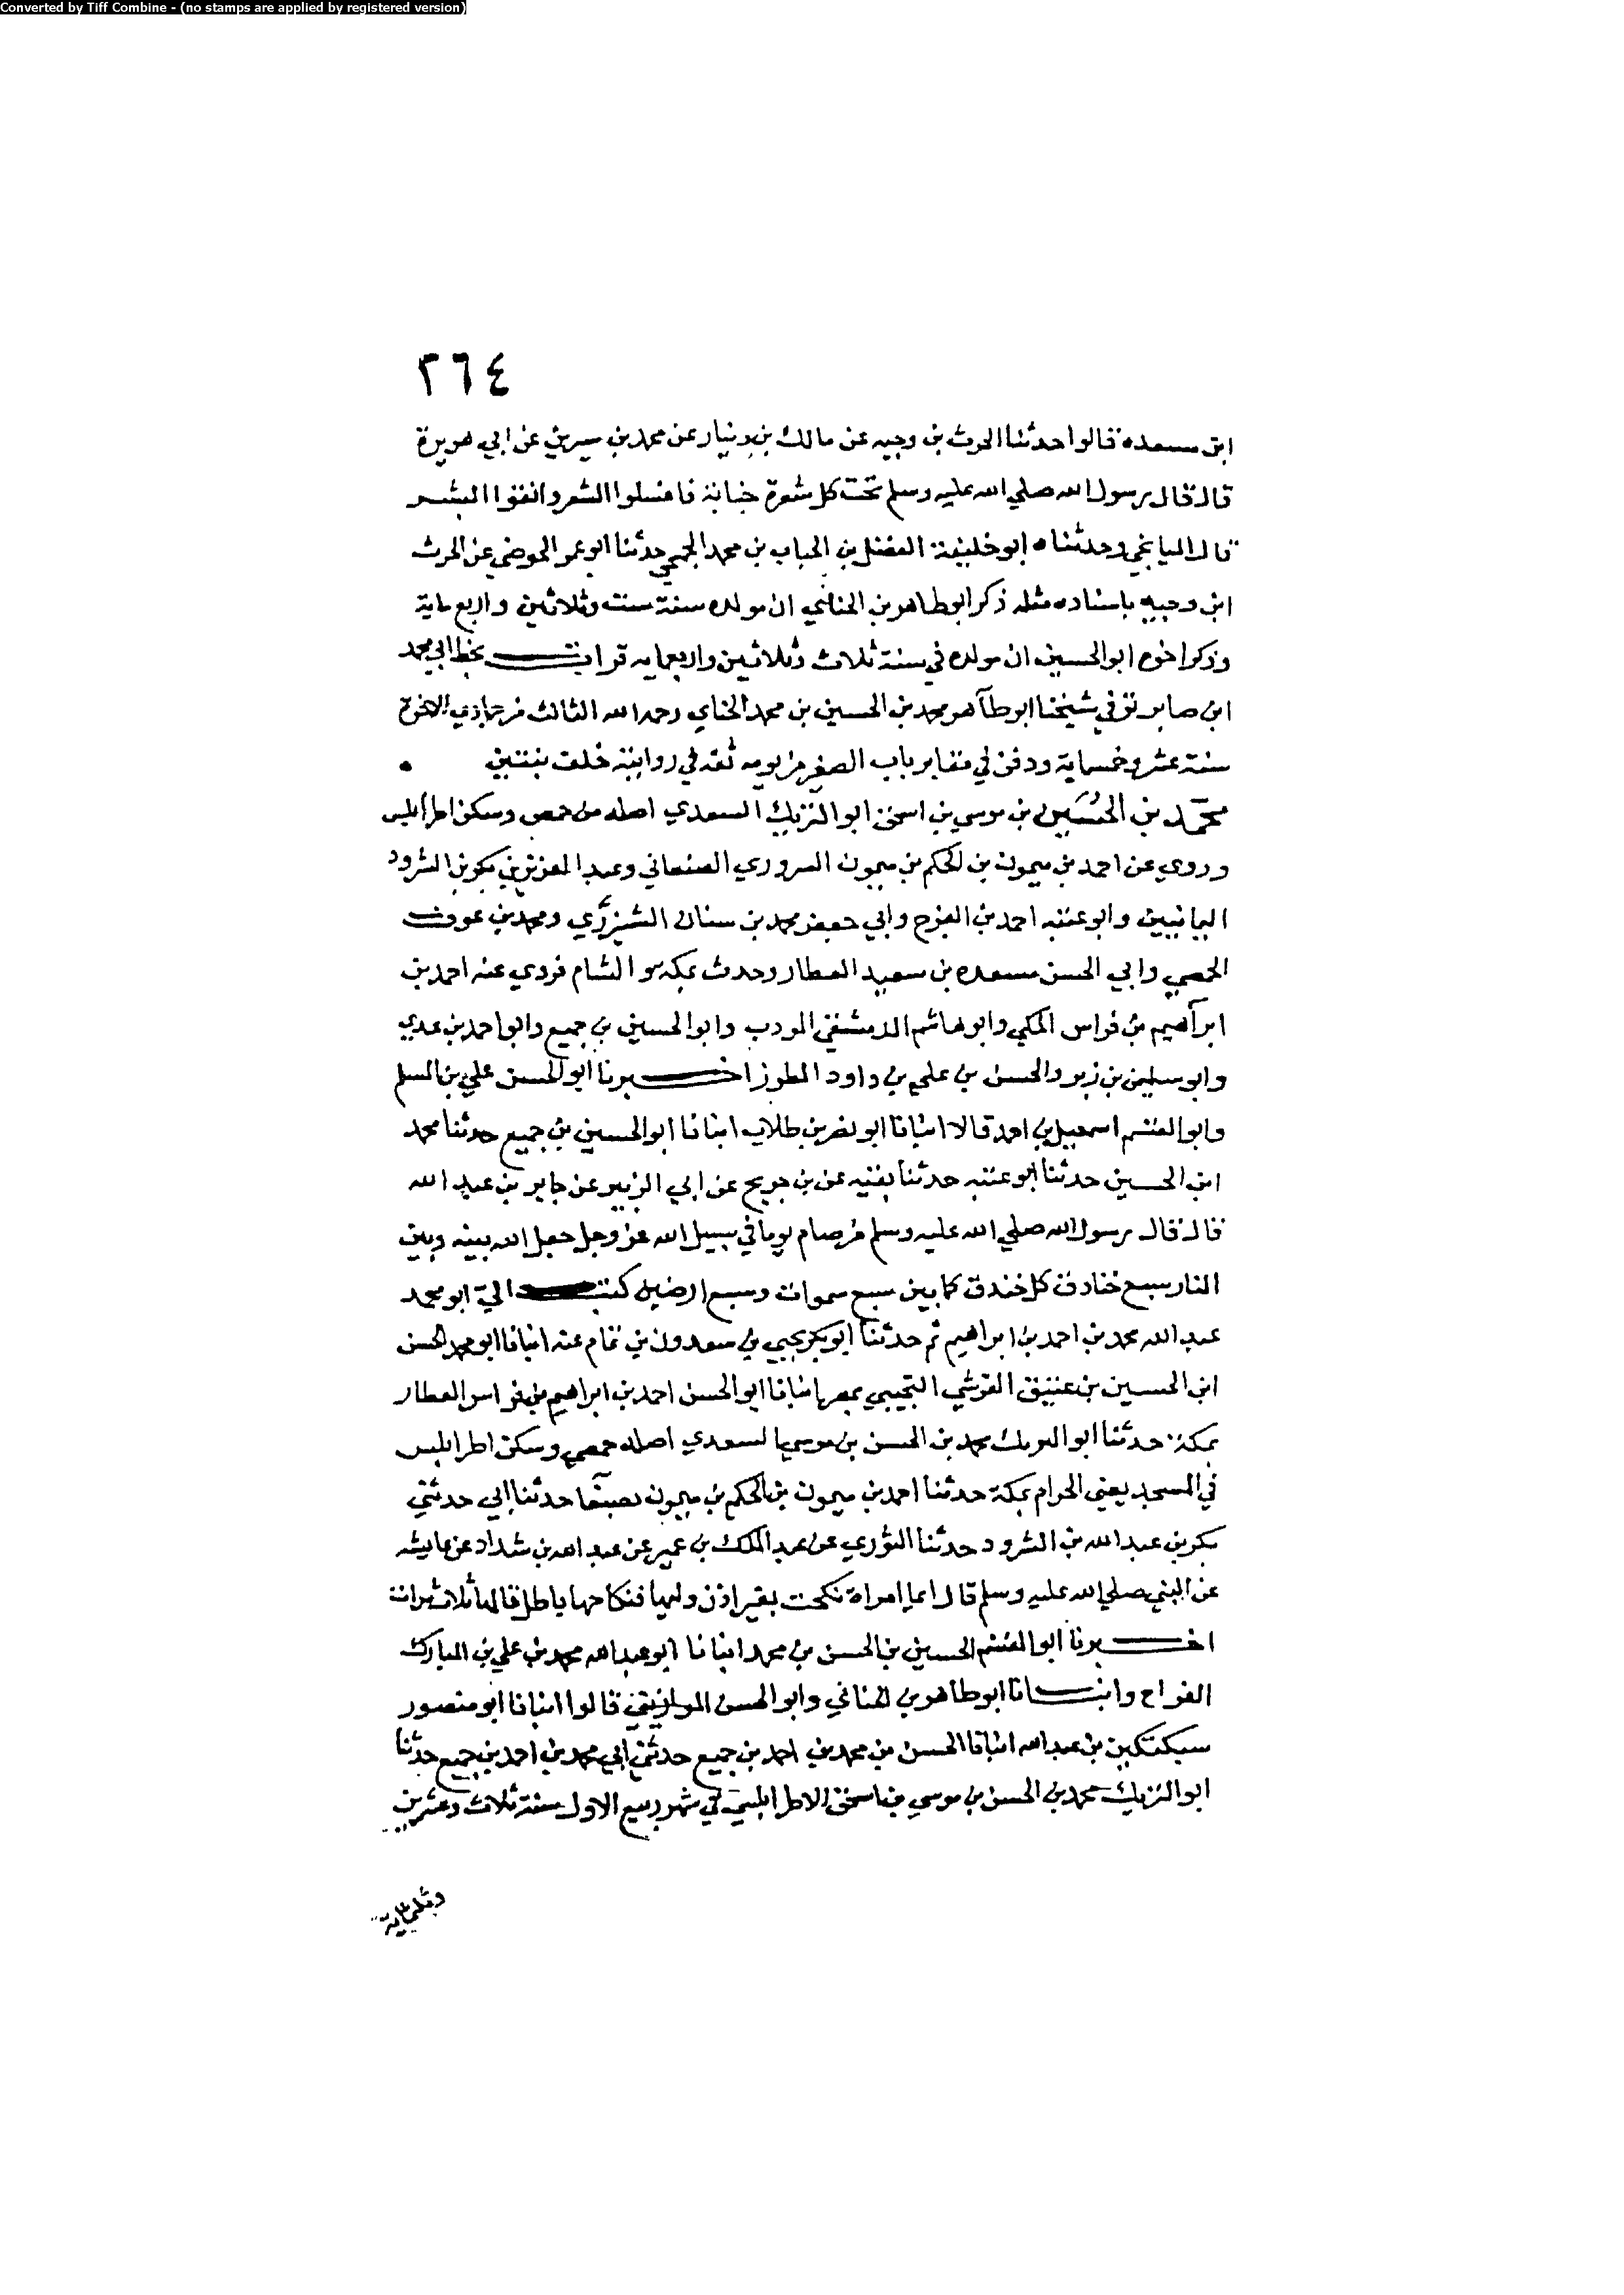 Converted by Tiff Combine - (no stamps are applied by registered version)
٢٦٤
ابن مسعده قالوا حدثنا الحرث بن وجيه عن مالك بن دينار عن محمد بن سيرين عن ابي هريرة
قال قال رسول الله صلي الله عليه وسلم تحت كل شعرة جنابة فاغسلوا الشعر وانقوا البشر
قال الميانجي وحدثناه ابو خليفة الفضل بن الحباب بن محمد الجمحي حدثنا ابو عمر الحوضي عن الحرث
ابن وجيه باسناده مثله ذكر ابو طاهر بن الحنائي ان مولده سنة ست وثلاثين واربع ماية
وذكر اخوه ابو الحسين ان مولده في سنة ثلاث وثلاثين واربعمايه قرات بخط ابي محمد
ابن صابر توفي شيخنا ابو طاهر محمد بن الحسين بن محمد الحناي رحمه الله الثالث من جمادي الاخرة
سنة عشر وخمسماية ودفن في مقابر باب الصغير من يومه ثقه في روايته خلف بنتين
محمد بن الحسين بن موسي بن اسحق ابو التريك السعدي اصله من حمص وسكن اطرابلس
وروي عن احمد بن ميمون بن الحكم بن ميمون السروري الصنعاني وعبد العزيز بن بكر بن الشرود
اليمانيين وابو عتبه احمد بن الفرج وابي جعفر محمد بن سنان الشيزري ومحمد بن عوف
الحمصي وابي الحسن مسعده بن سعيد العطار وحدث بمكه والشام فروي عنه احمد بن
ابراهيم بن فراس المكي وابو هاشم الدمشقي المودب وابو الحسين بن جميع وابو احمد بن عدي
وابو سليمن بن زبر والحسن بن علي بن داود المطرز اخبرنا ابو الحسن علي بن المسلم
وابو القسم اسمعيل بن احمد قالا انبانا ابو نصر بن طلاب انبانا ابو الحسين بن جميع حدثنا محمد
ابن الحسين حدثنا ابو عتبه حدثنا بقيه عن بن جريج عن ابي الزبير عن جابر بن عبد الله
قال قال رسول الله صلي الله عليه وسلم من صام يوما في سبيل الله عز وجل جعل الله بينه وبين
النار سبع خنادق كل خندق كما بين سبع سموات وسبع ارضين كتب الي ابو محمد
عبد الله محمد بن احمد بن ابراهيم ثم حدثنا ابو بكر يحيي بن سعدون بن تمام عنه انبانا ابو محمد الحسن
ابن الحسين بن عتيق القرشي التجيبي بمصر انبانا ابو الحسن احمد بن ابراهيم بن فراس العطار
بمكة حدثنا ابو التريك محمد بن الحسن بن موسي السعدي اصله حمصي وسكن اطرابلس
في المسجد يعني الحرام بمكة حدثنا احمد بن ميمون بن الحكم بن ميمون بصنعا حدثنا ابي حدثني
بكر بن عبد الله بن الشرود حدثنا الثوري عن عبد الملك بن عمير عن عبد الله بن شداد عن عايشه
عن النبي صلي الله عليه وسلم قال ايما امراة نكحت بغير اذن وليها فنكاحها باطل قالها ثلاث مرات
اخبرنا ابو القسم الحسين بن الحسن بن محمد انبانا ابو عبد الله محمد بن علي بن المبارك
الفراح وانبانا ابو طاهر بن الحنائي وابو الحسن الموازيني قالوا انبانا ابو منصور
سبكتكين بن عبد الله انبانا الحسن بن محمد بن احمد بن جميع حدثني ابي محمد بن احمد بن جميع حدثنا
ابو التريك محمد بن الحسن بن موسي بن اسحق الاطرابلسي في شهر ربيع الاول سنة ثلاث وعشرين
وثلثماية